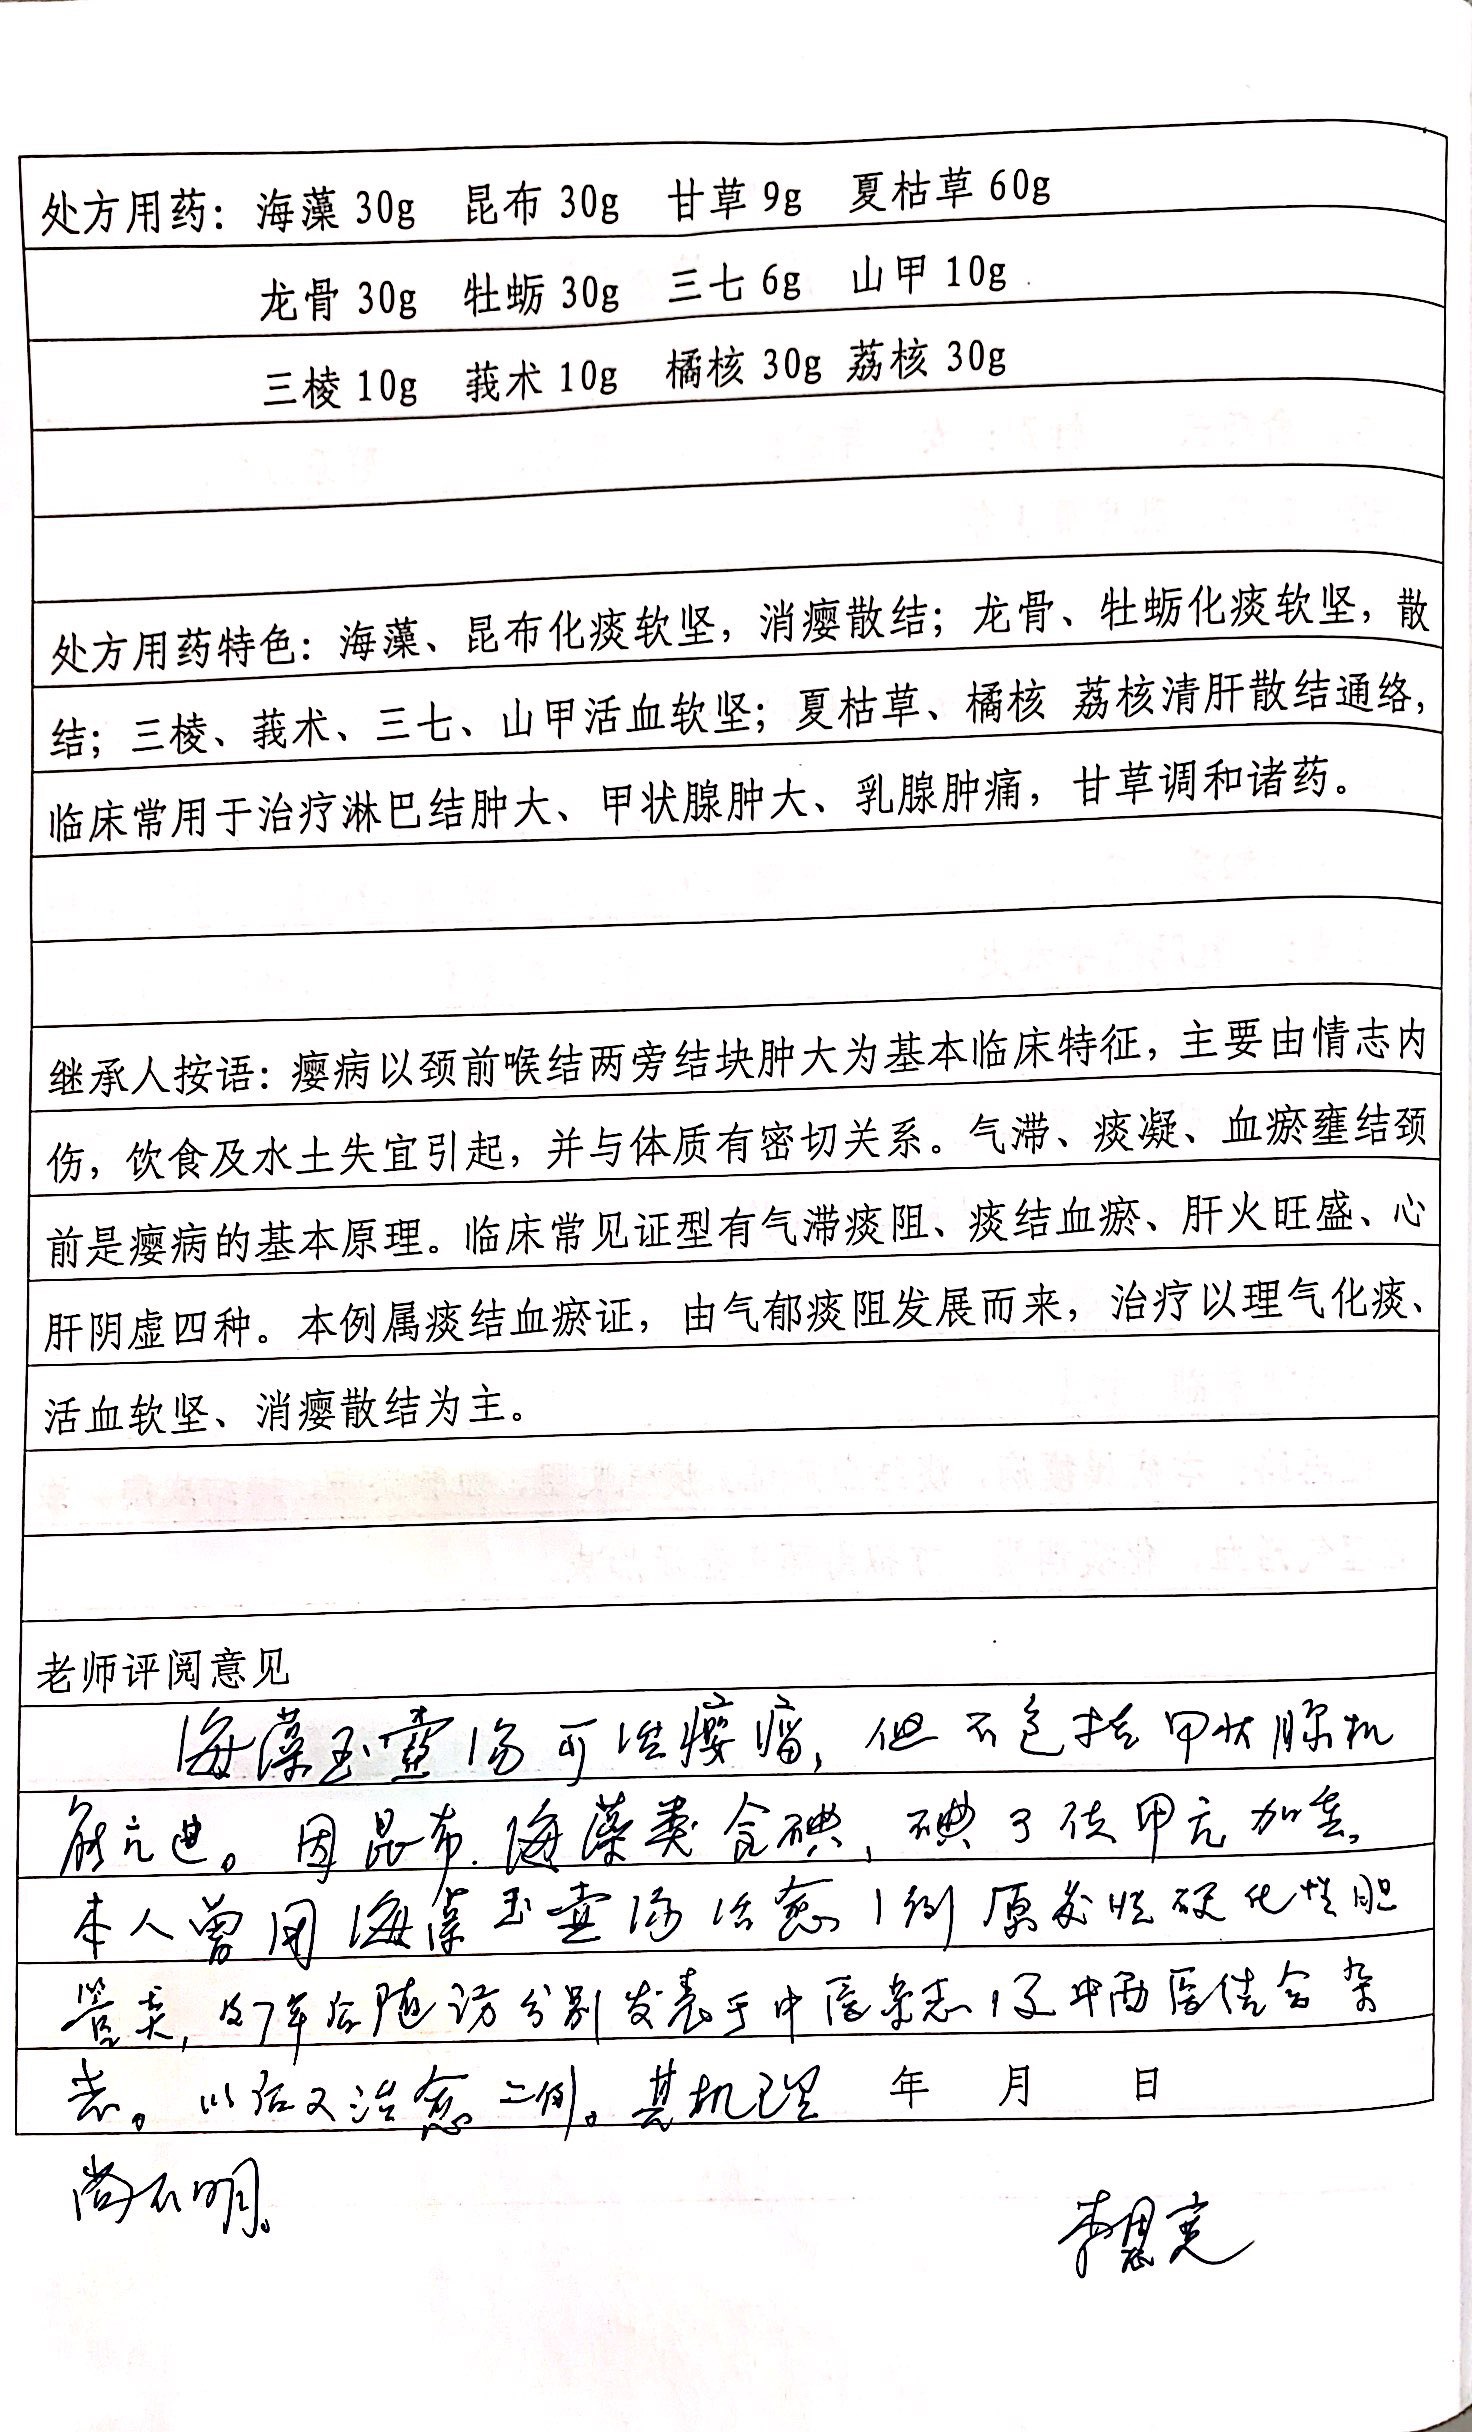 处方用药：海藻 30g 昆布 30g 甘草 9g 夏枯草 60g
龙骨 30g 牡蛎 30g 三七 6g 山甲 10g
三棱 10g 莪术 10g 橘核 30g 荔核 30g
处方用药特色：海藻、昆布化痰软坚，消瘿散结；龙骨、牡蛎化痰软坚，散
结；三棱、莪术、三七、山甲活血软坚；夏枯草、橘核 荔核清肝散结通络，
临床常用于治疗淋巴结肿大、甲状腺肿大、乳腺肿痛，甘草调和诸药。
继承人按语：瘿病以颈前喉结两旁结块肿大为基本临床特征，主要由情志内
伤，饮食及水土失宜引起，并与体质有密切关系。气滞、痰凝、血瘀壅结颈
前是瘿病的基本原理。临床常见证型有气滞痰阻、痰结血瘀、肝火旺盛、心
肝阴虚四种。本例属痰结血瘀证，由气郁痰阻发展而来，治疗以理气化痰、
活血软坚、消瘿散结为主。
老师评阅意见
海藻玉壶汤可治瘿瘤，但不包括甲状腺机
能亢进。因昆布.海藻类含碘，碘可使甲亢加重。
本人曾用海藻玉壶汤治愈1例原发性硬化性胆
管炎，及7年后随访分别发表于中医杂志，辽中西医结合杂
志。以后又治愈二例。其机理 年 月 日
尚不明。